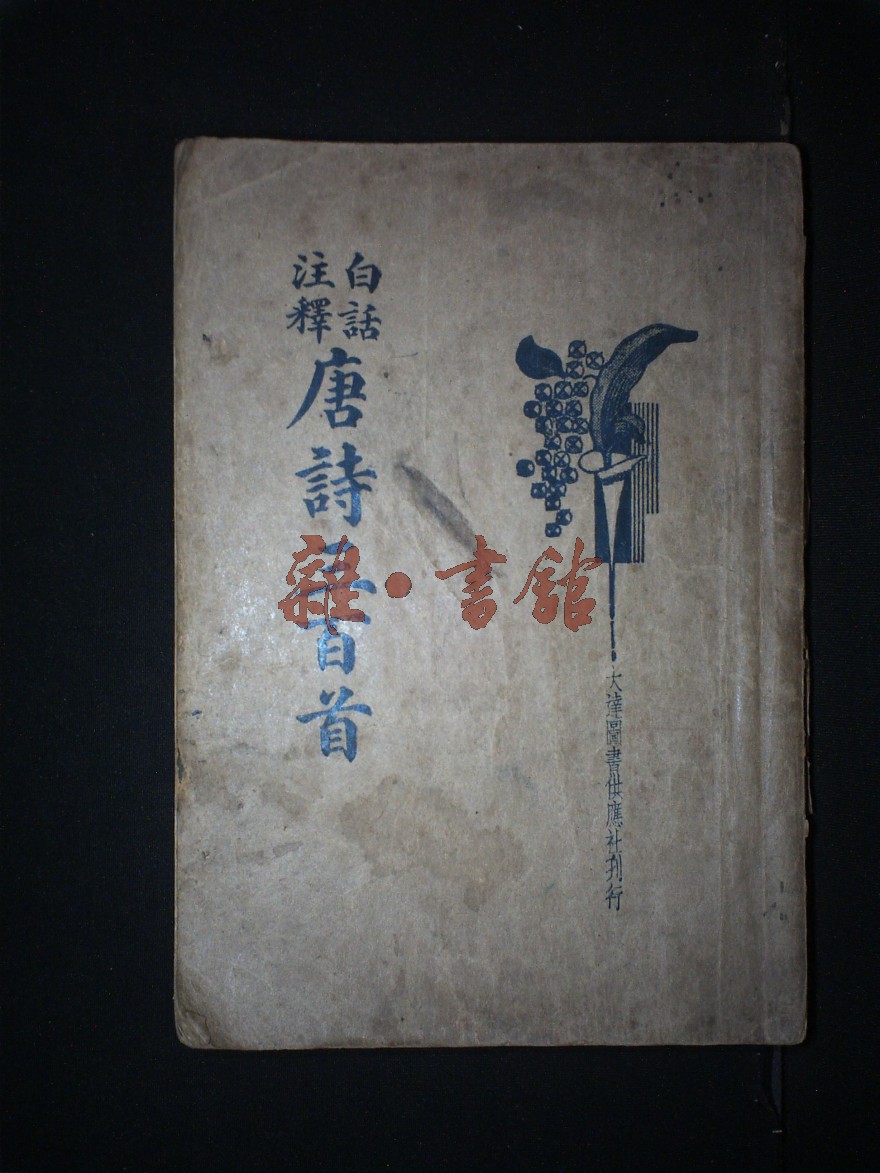 白話
注釋
唐詩三百首
雜·書館
大達圖書供應社刋行